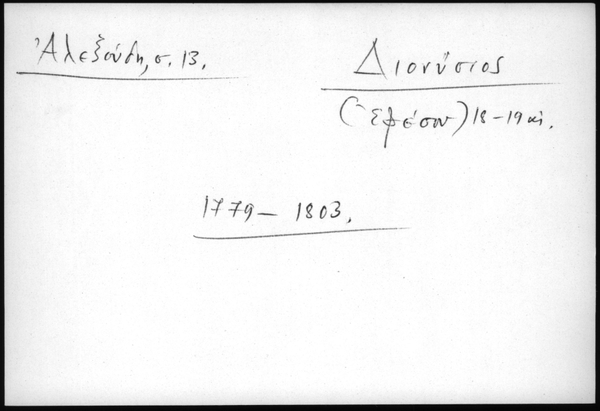 Ἀλεξούδη, σ. 13.
Διονύσιος
(Ἐφέσου) 18-19 αἰ.
1779 – 1803.